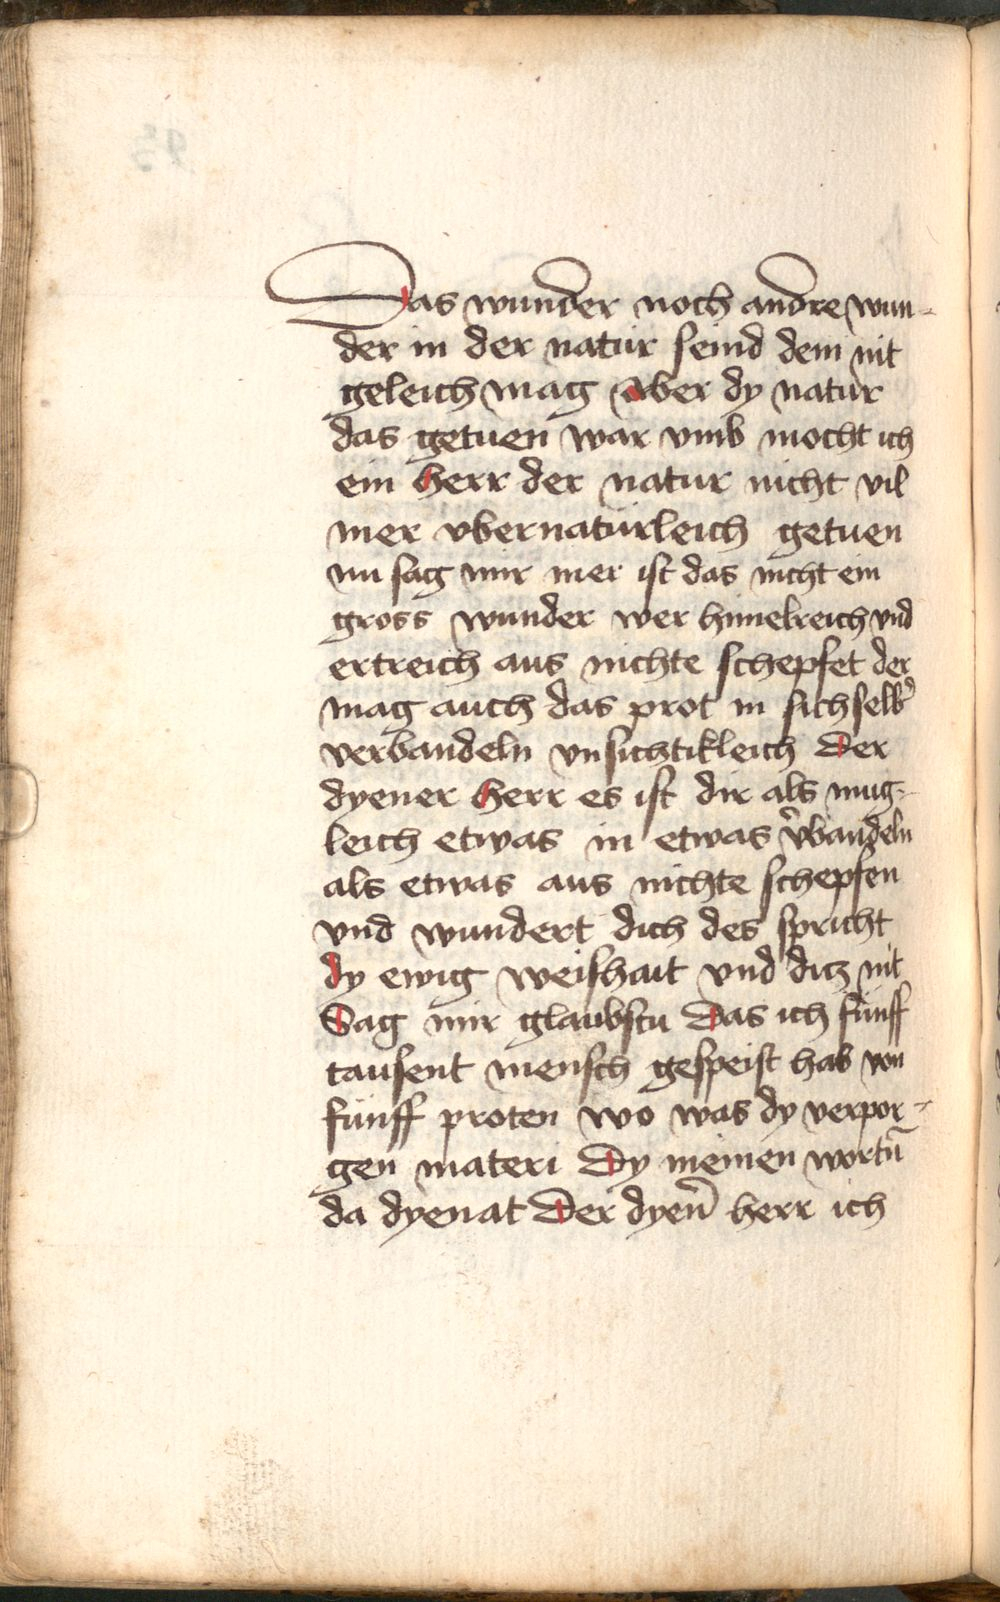 Das wunder noch andre wun-
der in der natur seind dem nit
geleich mag Aber dy natur
das getuen war vmb mocht ich
ein Herr der natur nicht vil
mer vbernaturleich getuen
nu sag mir mer ist das nicht ein
gross wunder wer himelreich vnd
ertreich aus nichte schepfet der
mag auch das prot in sich selb̛
verbandeln vnsichtikleich Der
dyener Herr es ist dir als mug-
leich etwas in etwas v̛bandeln
als etwas aus nichte schepfen
vnd wundert dich des spricht
dy ewig weishait vnd ditz nit
Sag mir glaubstu Das ich funff
tausent mensch gespeist hab von
funff proten wo was dy verpor-
gen materi Dy meinen wortn̄
da dyenat Der dyen̄ herr ich